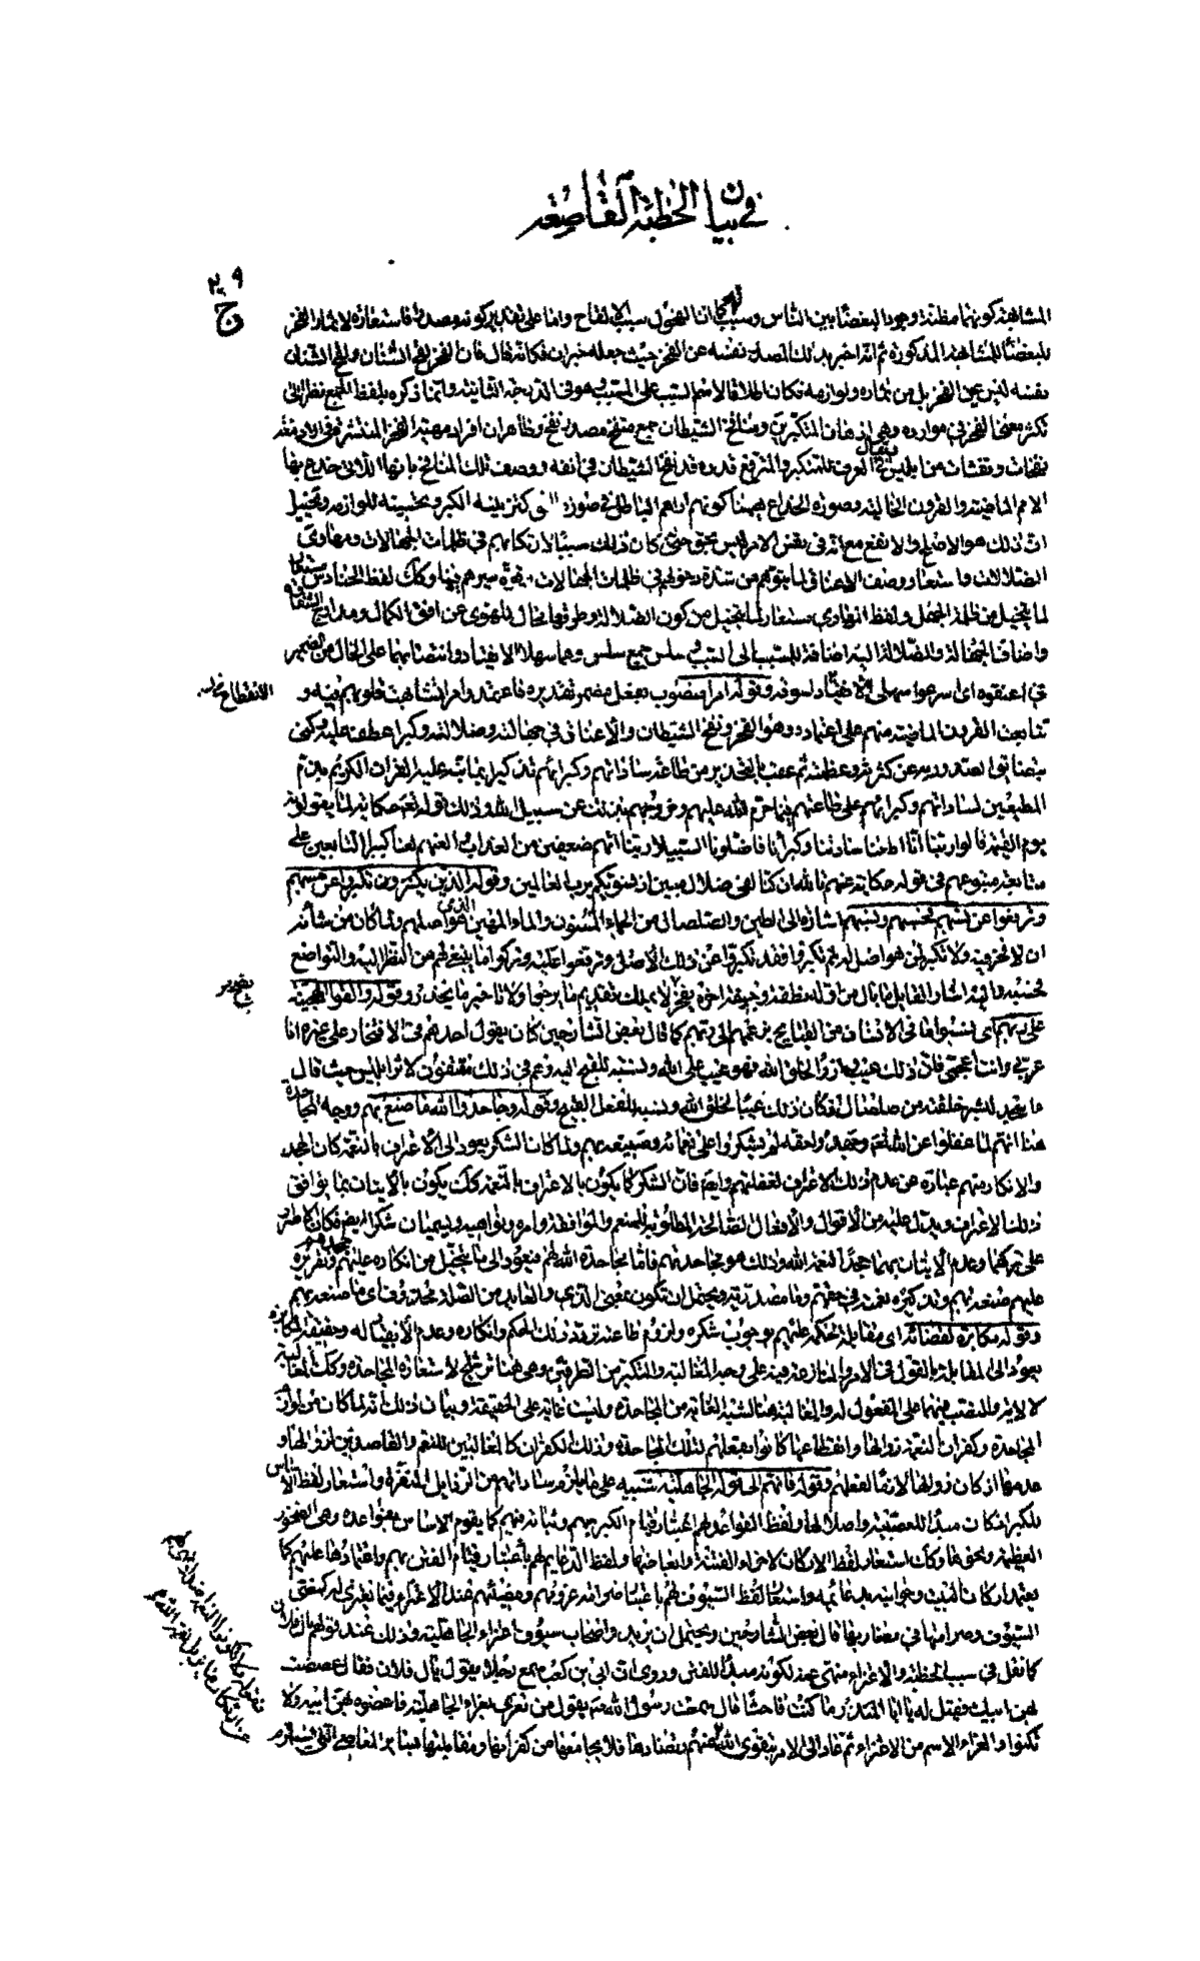 في بيان الخطبة القاصعة
٢٠٩
ج
المشابهة كونهما مظنة وجود البغضاء بين الناس وسببا لها كما ان الفحول سبب الالقاح واما على تقدير كونه مصدرا فاستعارة لاثمار الفخر
للبغضاء للمشابهة المذكورة ثم انه اخبر بذلك المصدر نفسه عن الفخر حيث جعله خبر ان فكانه قال فان الفخر لقح الشنان ولقح الشنان
نفسه ليس عين الفخر بل من ثماره ولوازمه فكان اطلاقا لاسم السبب على المسبب وهو في الدرجة الثانية وانما ذكره بلفظ الجمع نظرا الى
تكثر معنى الفخر في موارده وهي اذهان المتكبرين ومنافخ الشيطان جمع منفخ مصدر نفخ وظاهر ان افراد مهية الفخر المنتشرة في
نفخات ونفثات من ابليس يقال في العرف للمتكبر والمترفع قدره قد نفخ الشيطان في انفه ووصف تلك المنافخ بانها اللاتي خدع بها
الامم الماضية والقرون الخالية وصورة الخداع ههنا كونهم اراهم الباطل في صورة الحق كتزيينه الكبر وتحسينه للوازمه وتخييل
ان ذلك هو الاصلح والانفع مع انه في نفس الامر ليس بحق حتى كان ذلك سببا لارتكابهم في ظلمات الجهالات ومهاوى
الضلالات واستعار وصف الاعناق لما يتوهم من شدة دخولهم في ظلمات الجهالات وقوة سيرهم فيها وكك لفظ الحنادس مستعار
لما يتخيل من ظلمة الجهل ولفظ المهاوي مستعار لما يتخيل من كون الضلالة وطرقها محال للهوى عن افق الكمال ومدارج السعادة
واضاف الجهالة والضلالة اليه اضافة للمسبب الى السبب وسلس جمع سلس وهما سهلا الانقياد وانتصابهما على الحال من الضمير
في اعنقوه اى اسرعوا سهلى الانقياد لسوقه وقوله امرا منصوب بفعل مضمر تقديره فاعتمد امرا تشابهت قلوبهم فيه و
تتابعت القرون الماضية منهم على اعتماده وهو الفخر ونفخ الشيطان والاعناق في جهالته وضلالته وكبرا عطف عليه وكنى
بتضايق الصدور به عن كثرته وعظمته ثم عقب بالتحذير من طاعة ساداتهم وكبرائهم تذكيرا بما نبه عليه القران الكريم من ذم
المطيعين لساداتهم وكبرائهم على طاعتهم فيما حرم الله عليهم وخروجهم بذلك عن سبيل الله وذلك قوله تعالى حكاية لما يقولونه
يوم القيمة قالوا ربنا انا اطعنا سادتنا وكبراءنا فاضلونا السبيلا ربنا اتهم ضعفين من العذاب والعنهم لعنا كبيرا التابعين على
متابعة متبوعهم في قوله حكاية عنهم تالله ان كنا لفي ضلال مبين اذ نسويكم برب العالمين وقوله الذين تكبروا عن حسبهم
وترفعوا عن نسبهم اشارة الى الطين والصلصال من الحماء المسنون والماء المهين الذى هو اصلهم ولما كان من شانه
على ربهم اى نسبوا ما في الانسان من القبايح بزعمهم الى ربهم كما قال بعض الشارحين كان يقول احدهم في الافتخار على غيره انا
عربي وانت اعجمي فان ذلك عيب وازراء لخلق الله فهو عيب على الله ونسبته للقبح اليه وهم في ذلك مقتفون لاثر ابليس حيث قال
ما اسجد لبشر خلقته من صلصال فكان ذلك عيبا لخلق الله ونسبة للفعل القبيح وقوله وجاحدوا الله ما صنع بهم ووجه المجاحدة
هنا انهم لما غفلوا عن الله تعالى وعهده وحقه لم يشكروا على نعمائه وصنيعه بهم ولما كان الشكر يعود الى الاعتراف بالنعمة كان الجحد
والانكار منهم عبارة عن عدم ذلك الاعتراف لغفلتهم وايضا فان الشكر كما يكون بالاعتراف بالنعمة كك يكون بالاتيان بما يوافق
ذلك الاعتراف ويدل عليه من الاقوال والافعال
على تركهما وعدم الاتيان بهما جحدا لنعمة الله وذلك هو مجاحدتهم فاما مجاحدة الله لهم فيعود الى ما يتخيل من انكاره عليهم وتقريره
عليهم صنعه بهم وتذكيره نعمته في حقهم وما مصدرية ويحتمل ان تكون بمعنى الذى والعايد من الصلة محذوف اى ما صنعه بهم
وقوله مكابرة لقضائه اى مقابلة لحكمه عليهم بوجوب شكره ولزوم طاعته برد ذلك الحكم وانكاره وعدم الانقياد له وحقيقة المكابرة
يعود الى المقابلة بالقول في الامر والمنازعة فيه على وجه المغالبة والتكبر من الطرفين وهي هنا ترشيح لاستعارة المجاحدة وكك المغالبة
لآلائه والنصب فيهما على المفعول له والمغالبة هنا لشبه الغاية من المجاحدة وليست غاية على الحقيقة وبيان ذلك انه لما كان من لوازم
المجاحدة وكفران النعمة زوالها وانقطاعها كانوا بفعلهم لتلك المجاحدة وذلك الكفران كالمغالبين للنعم والقاصدين لزوالها و
عدمها اذ كان زوالها لازما لفعلهم وقوله فانهم الى قوله الجاهلية تنبيه على ما يلزم ساداتهم من الرذايل المنفرة واستعار لفظ الاساس
للكبر اذ كان مبدأ للعصبية واصلا لها ولفظ القواعد لهم باعتبار قيام الكبر بهم وثباته فيهم كما يقوم الاساس بقواعده وهي الصخور
العظيمة ونحوها وكك استعار لفظ الاركان لاجزاء الفتنة وابعاضها ولفظ الدعايم لهم باعتبار قيام الفتن بهم واعتمادها عليهم كما
يعتمد اركان البيت وجوانبه بدعائمه واستعار لفظ السيوف لهم باعتبار صرامة عزومهم ومضيهم عند الاعتزاء فيما يعتزى له كمضى
السيوف وصرامتها في مضاربها قال بعض الشارحين ويحتمل ان يريد واصحاب سيوف اعتزاء الجاهلية وذلك عند قولهم يال فلان
كما نقل في سبب الخطبة والاعتزاء منهى عنه لكونه مبدأ للفتن وروى ان ابي بن كعب سمع رجلا يقول يال فلان فقال عضضت
بهن ابيك فقيل له يا ابا المنذر ما كنت فاحشا قال سمعت رسول الله ص يقول من تعزى بعزاء الجاهلية فاعضوه بهن ابيه ولا
تكنوا والعزاء الاسم من الاعتزاء ثم عاد الى الامر بتقوى الله